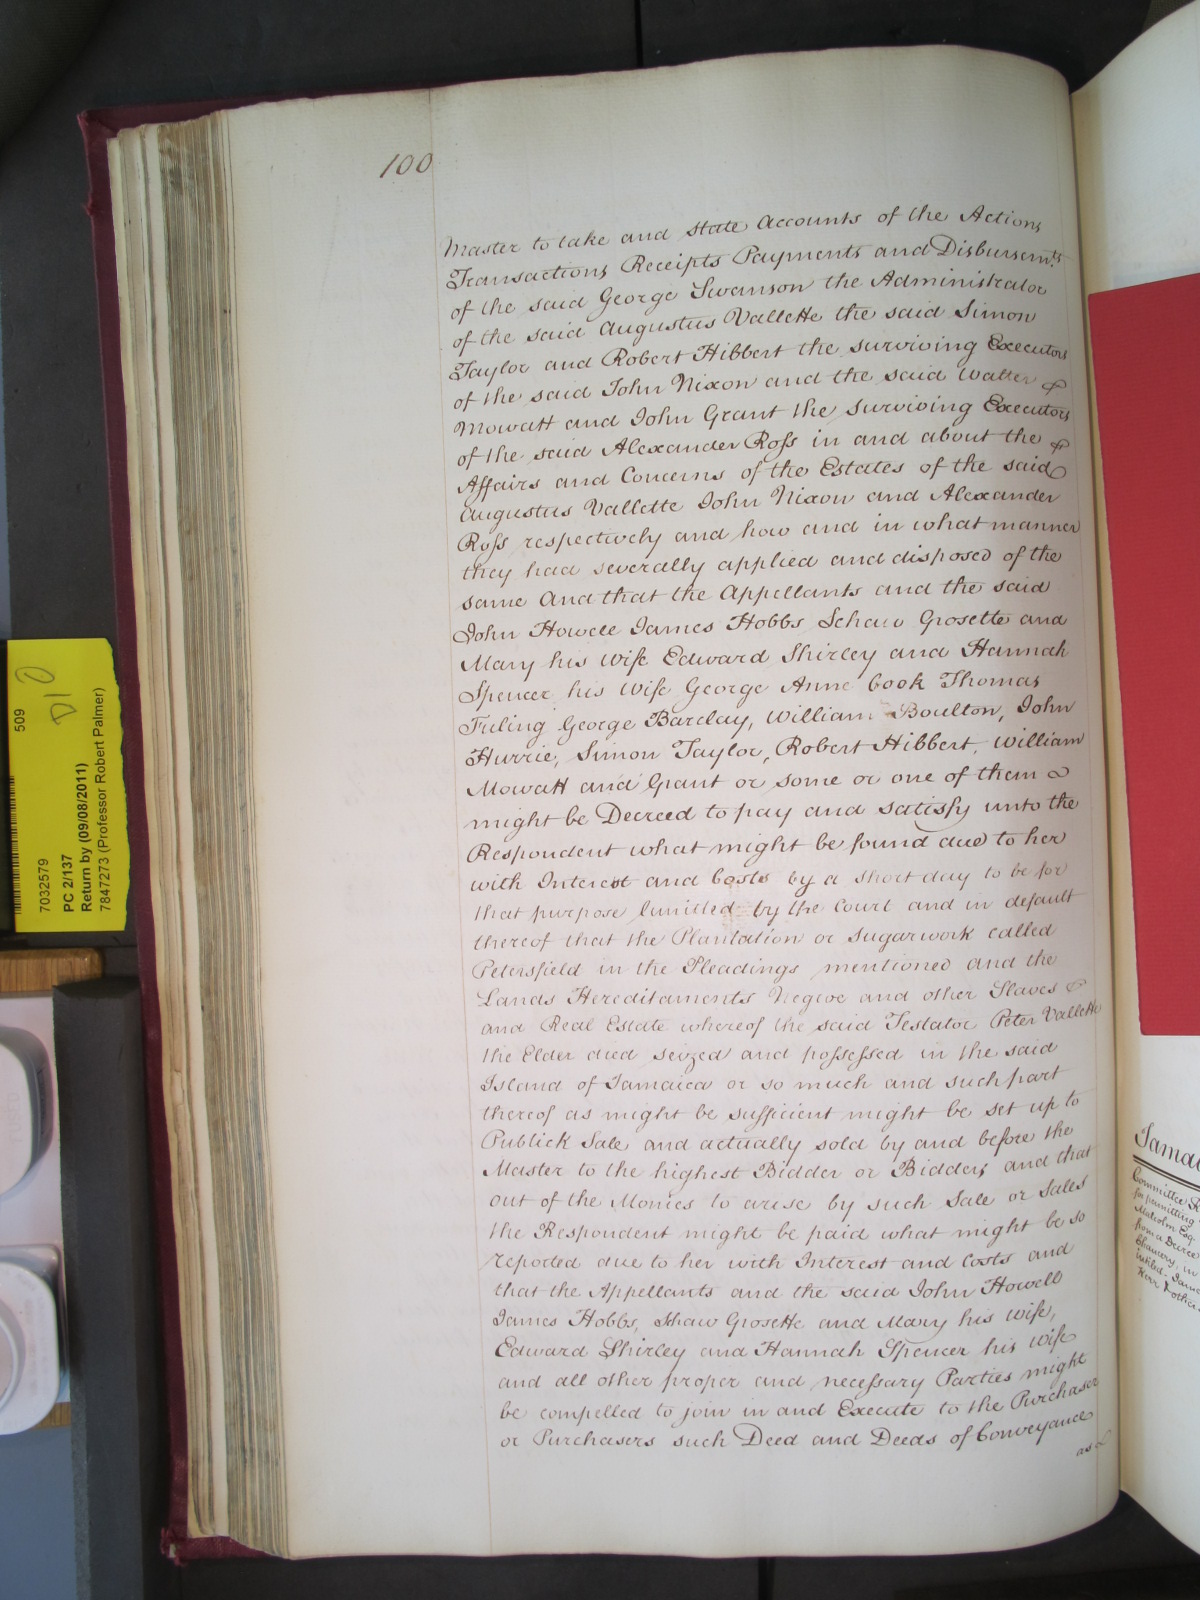 100
Master to take and state Accounts of the Actions
Transactions Receipts Payments and Disbursemts
of the said George Swanson the Administrator
of the said Augustus Vallette the said Simon
Taylor and Robert Hibbert the surviving Executors
of the said John Nixon and the said Walter &
Mowatt and John Grant the surviving Executors
of the said Alexander Ross in and about the &
Affairs and Concerns of the Estates of the said
Augustus Vallette John Nixon and Alexander
Ross respectively and how and in what manner
they had severally applied and disposed of the
same And that the Appellants and the said
John Howell James Hobbs Schaw Grosette and
Mary his Wife Edward Shirley and Hannah
Spencer his Wife George Anne Cook Thomas
Fuling George Barclay, William Boulton, John
Hurrie, Simon Taylor, Robert Hibbert, William
Mowatt and Grant or some or one of them
might be Decreed to pay and satisfy unto the
Respondent what might be found due to her
with Interest and Costs by a short day to be for
that purpose limitted by the Court and in default
thereof that the Plantation or Sugarwork called
Petersfield in the Pleadings mentioned and the
Lands Hereditaments Negroe and other Slaves &
and Real Estate whereof the said Testator Peter Vallette
the Elder died seized and possessed in the said
Island of Jamaica or so much and such part
thereof as might be sufficient might be set up to
Publick Sale and actually sold by and before the
Master to the highest Bidder or Bidders and that
out of the Monies to arise by such Sale or Sales
the Respondent might be paid what might be so
reported due to her with Interest and Costs and
that the Appellants and the said John Howell
James Hobbs, Shaw Grosette and Mary his Wife,
Edward Shirley and Hannah Spencer his Wife
and all other proper and necessary Parties might
be compelled to join in and Execute to the Purchaser
or Purchasers such Deed and Deeds of Conveyance
as
509
D10
7032579
PC 2/137
Return by (09/08/2011)
7847273 (Professor Robert Palmer)
Jama
Committee
for permitting
Malcolm Esq
from a Decree
Chancery, in